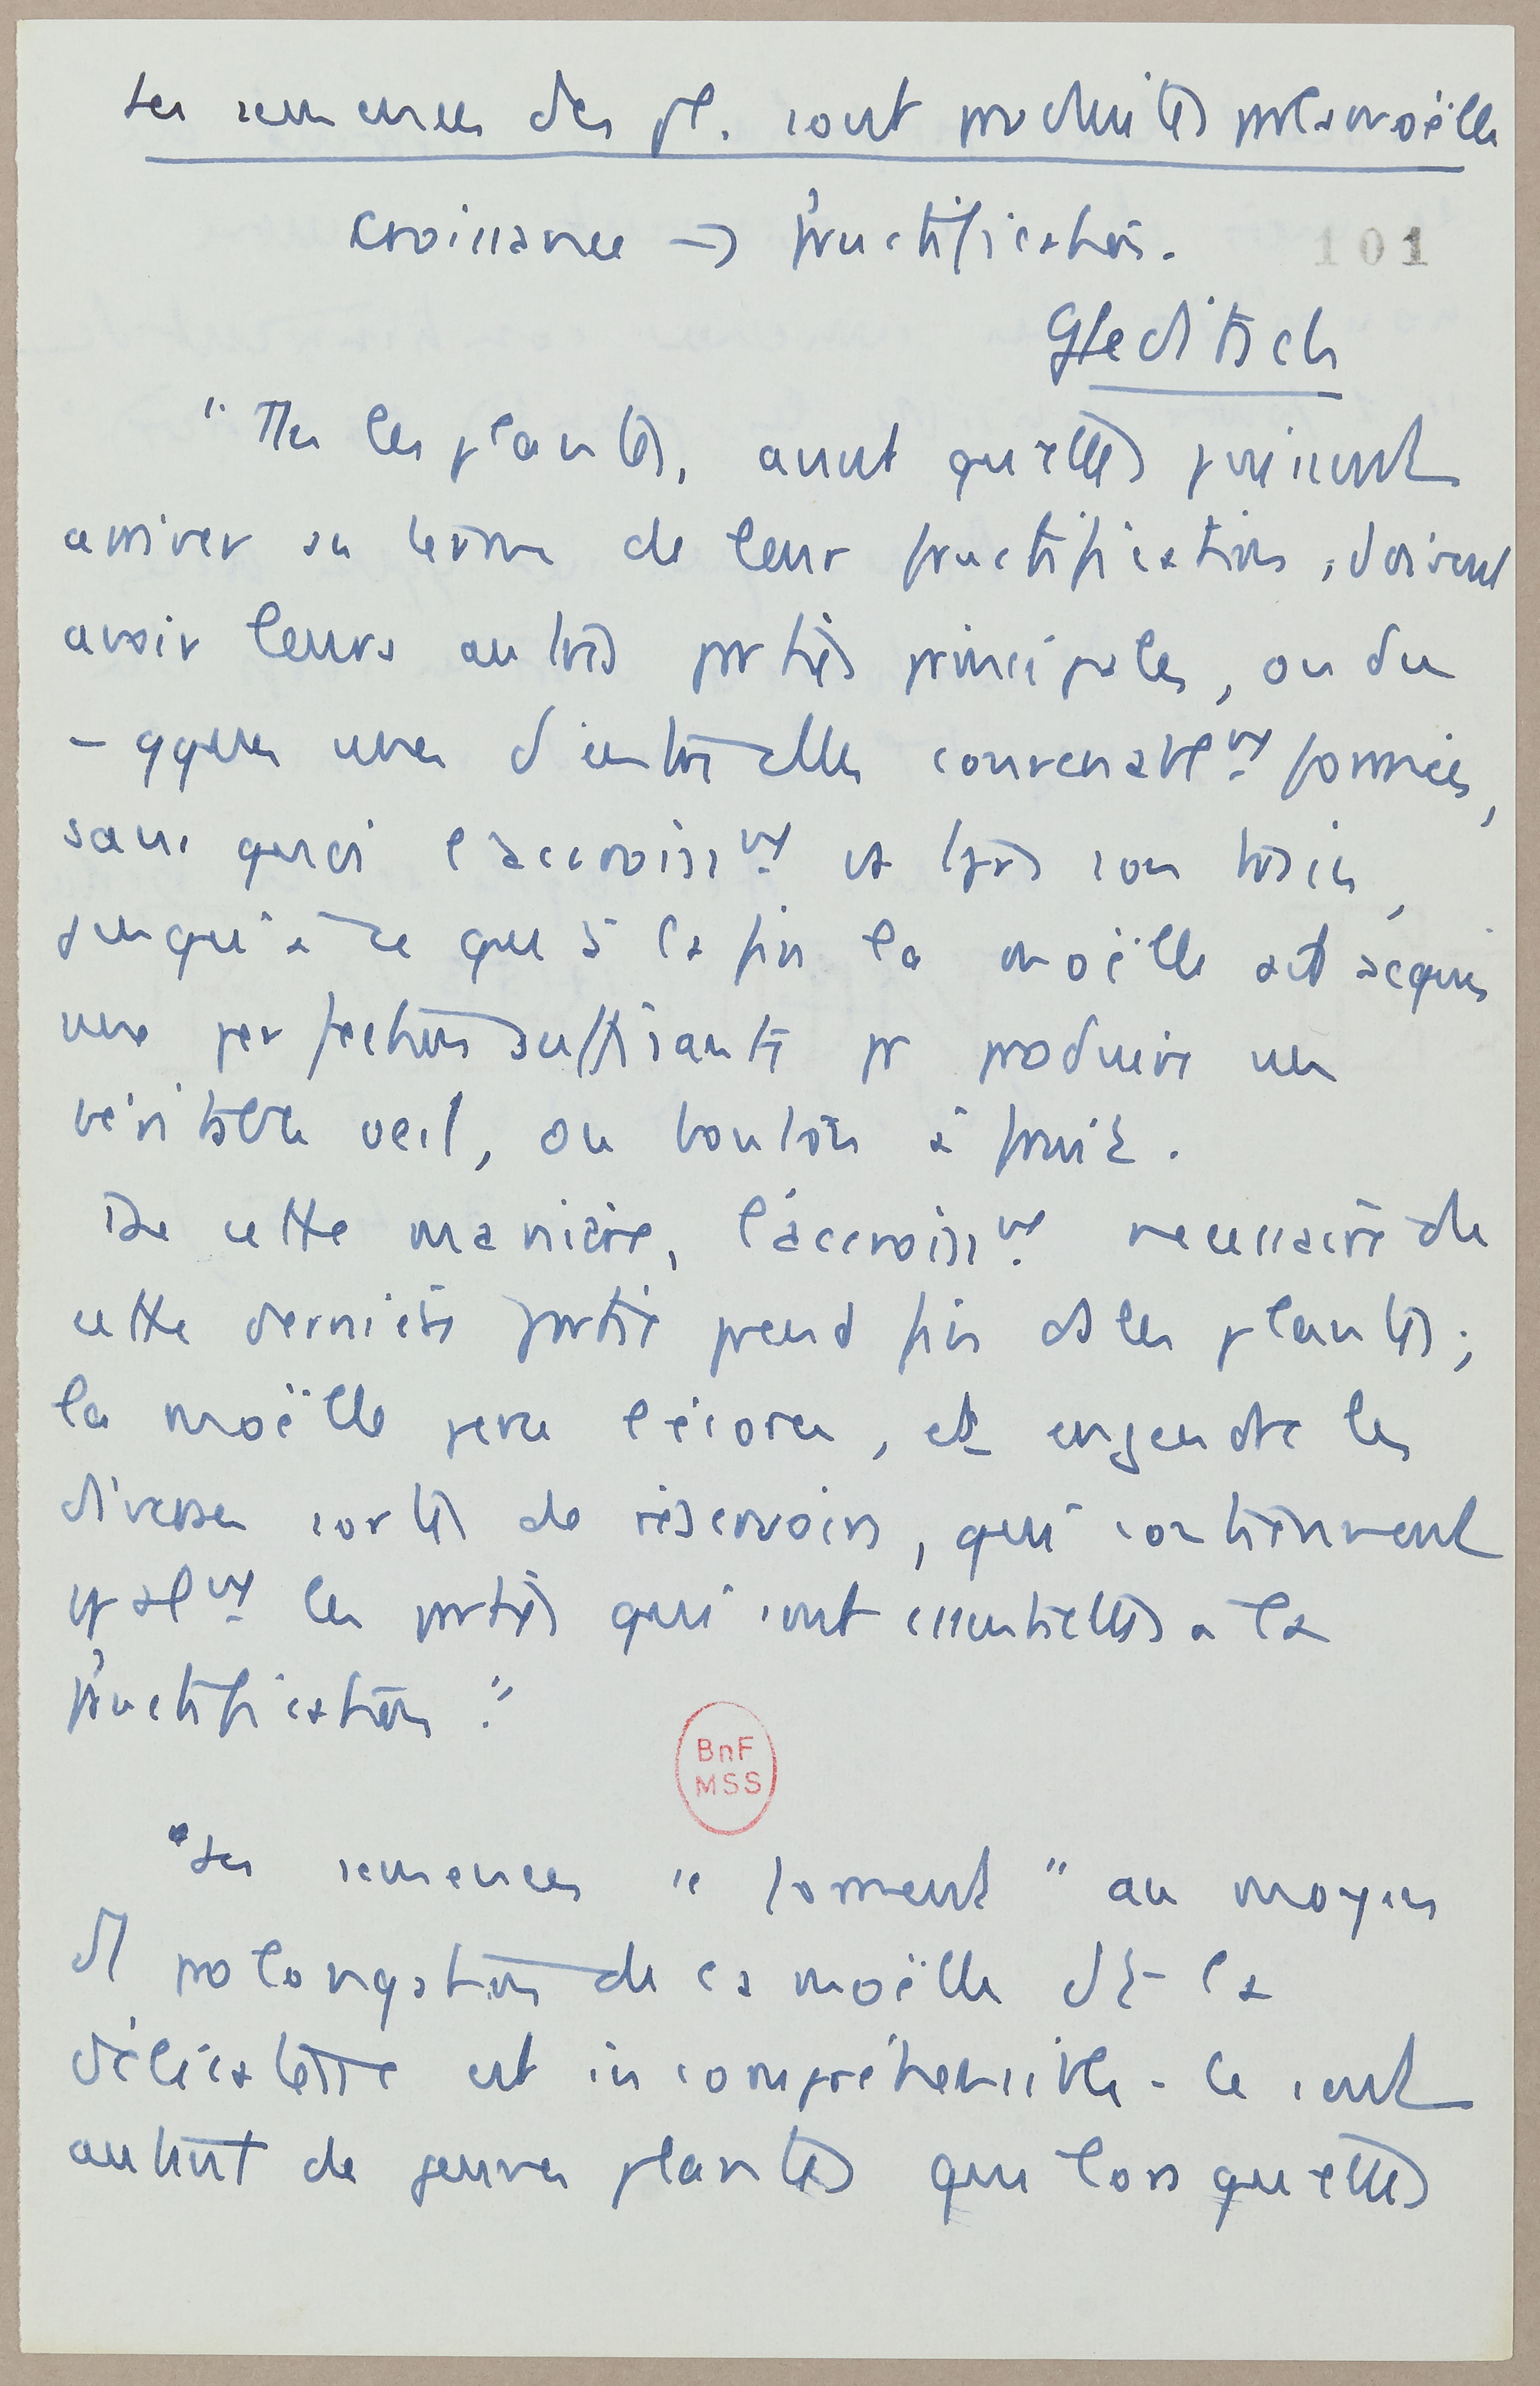 Les semences des pl. sont produites par la moëlle
croissance → fructification.
101
Gleditsch
"Ttes les plantes, avant qu'elles puissent
arriver au terme de leur fructification, doivent
avoir leurs autres parties principales, ou du
- qques unes d'entre elles convenablt formées,
sans quoi l'accroisst va tjrs son train,
jusqu'à ce que à la fin la moëlle ait acquis
une perfection suffisante pr produire un
véritable oeil, ou bouton à fruit.
De cette manière, l'accroisst necessaire de
cette dernière partie prend fin ds les plantes;
la moëlle perce l'écorce, et engendre les
diverses sortes de réservoirs, qui contiennent
égalt les parties qui sont essentielles à la
fructification."
BnF
MSS
Les semences se "forment" au moyen
d'1 prolongation de la moëlle dt la
délicatesse est incompréhensible. Ce sont
autant de jeunes plantes que lorsqu'elles